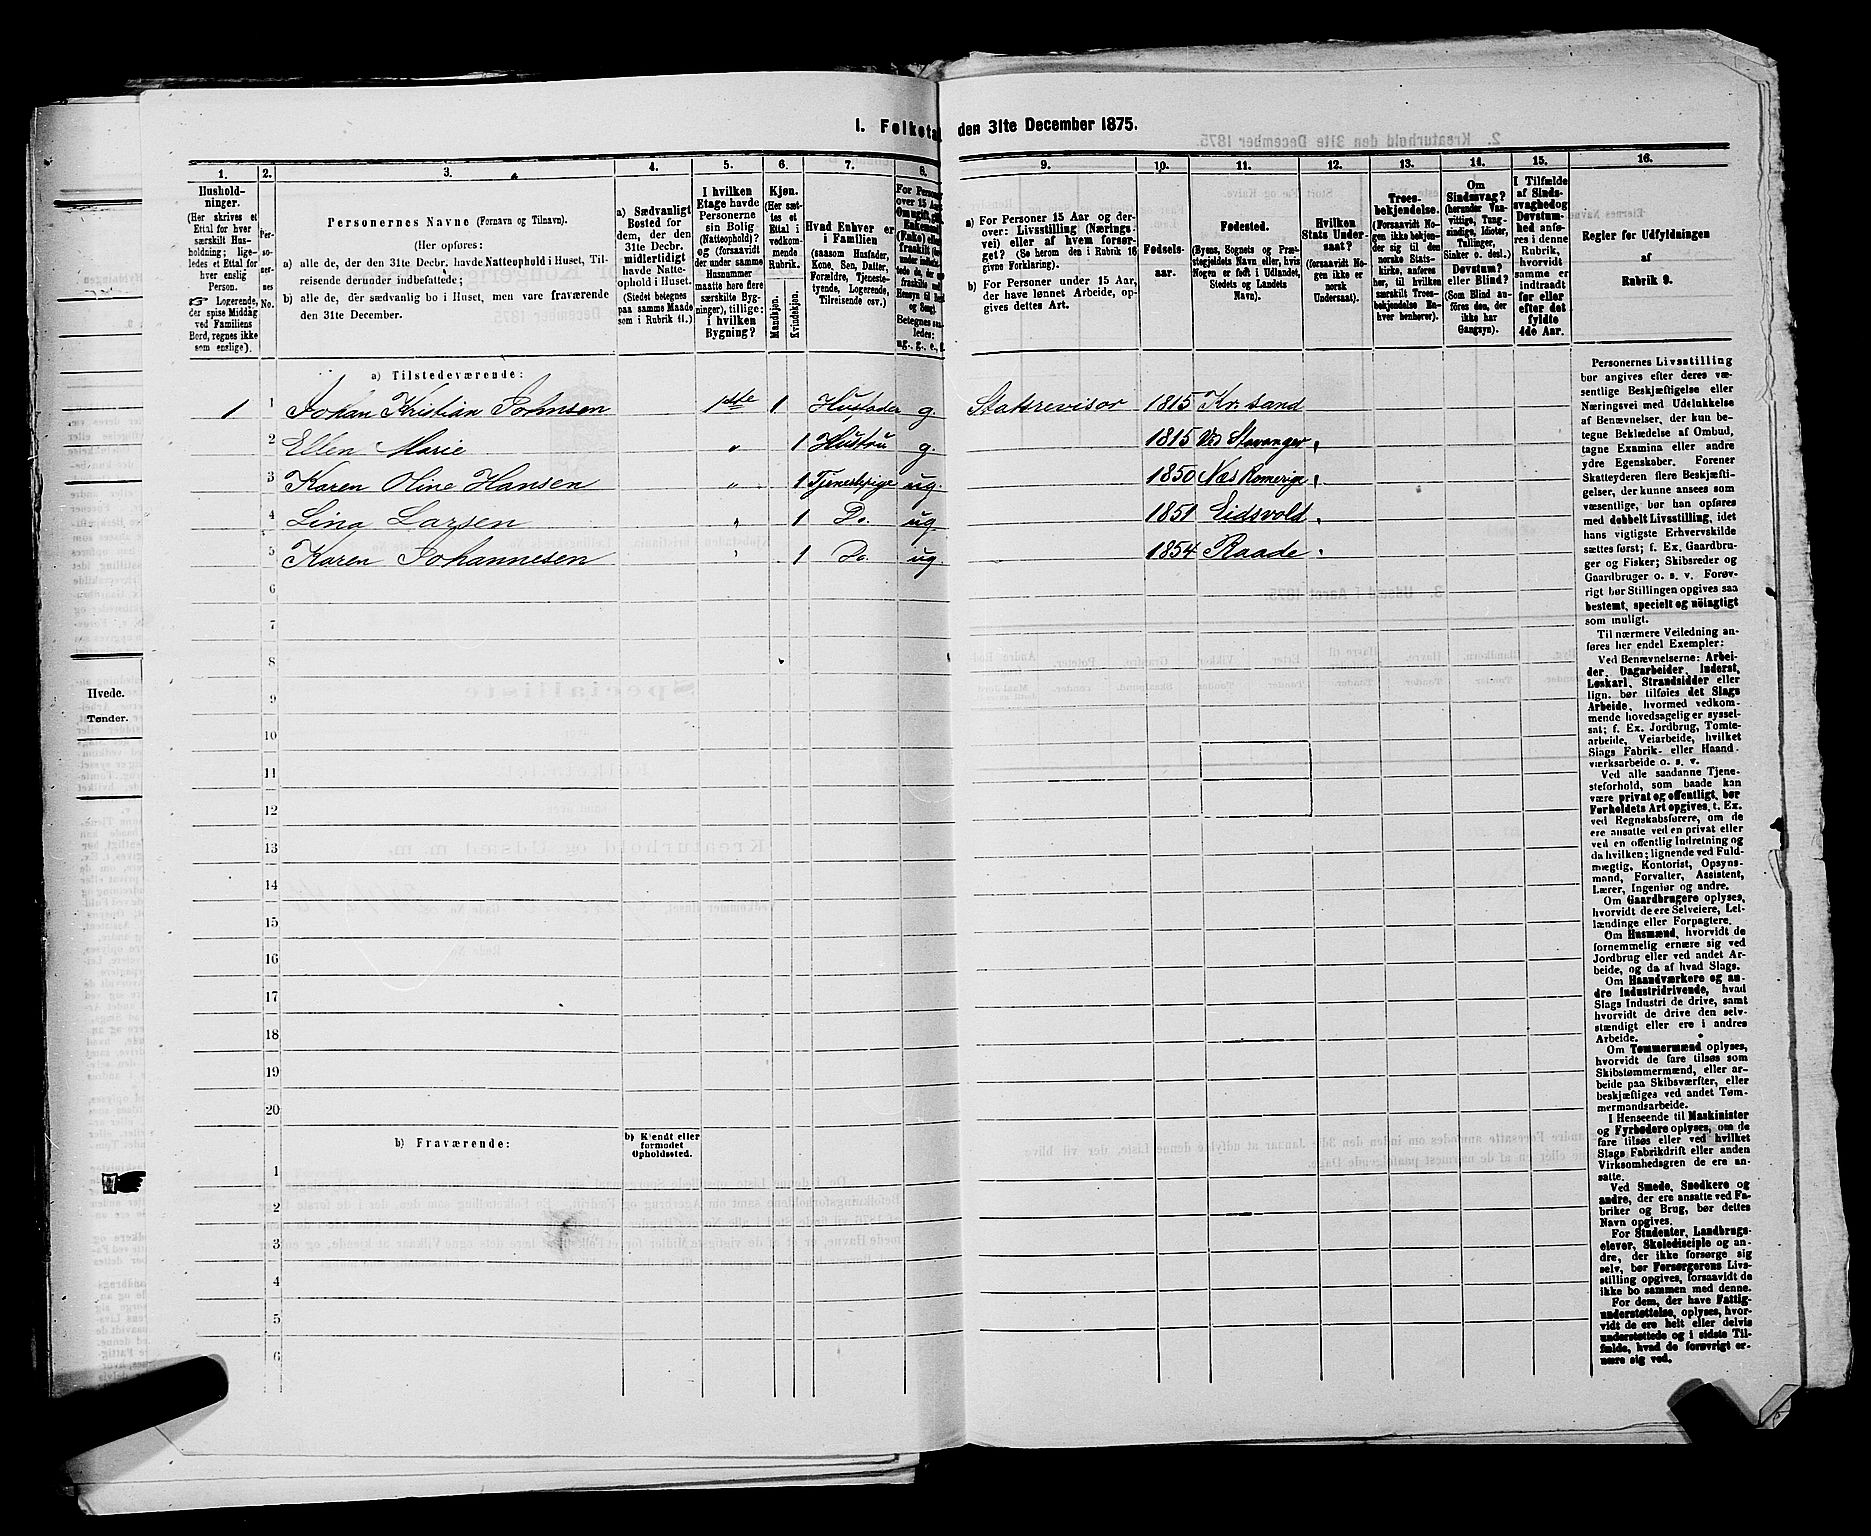 1. Folketa
den 31te December 1875.
1.
2.
3.
4.
5.
6.
7.
8.
9.
10.
11.
12.
13.
14.
15.
16.
Hushold-
ninger.
(Her skrives et
Ettal for hvert
særskilt Hus-
holdning; lige-
ledes et Ettal for
hver enslig
Person.
☞ Logerende,
der spise Middag
ved Familiens
Bord, regnes ikke
som enslige).
Per-
so-
ner-
nes
No.
Personernes Navne (Fornavn og Tilnavn).
(Her opføres:
a) alle de, der den 31te Decbr. havde Natteophold i Huset, Til-
reisende derunder indbefattede;
b) alle de, der sædvanlig bo i Huset, men vare fraværende
den 31te December.
a) Sædvanligt
Bosted for
dem, der den
31te Decbr.
midlertidigt
havde Natte-
ophold i Huset.
(Stedet betegnes
paa samme Maade
som i Rubrik 11.)
I hvilken
Etage havde
Personerne
sin Bolig
(Natteophold)?
og (forsaavidt
der under samme
Husnummer
maatte høre flere
særskilte Byg-
ninger), tillige:
i hvilken
Bygning?
Kjøn.
(Her sæt-
tes et
Ettal i
vedkom-
mende
Rubrik.
Mandkjøn.
Kvindekjøn.
Hvad Enhver er
i Familien
(saasom Husfader,
Kone, Søn, Datter,
Forældre, Tjeneste-
tyende, Logerende,
Tilreisende osv.)
a) For Personer 15 Aar og der-
over: Livsstilling (Nærings-
vei) eller af hvem forsør-
get? (Se herom den i Rubrik 16
givne Forklaring).
b) For Personer under 15 Aar,
der have lønnet Arbeide, op-
gives dettes Art.
Fødsels-
aar.
Fødested.
(Byens, Sognets og Præ-
stegjeldets Navn eller, hvis
Nogen er født i Udlandet,
Stedets og Landets
Navn).
Hvilken
Stats Under-
saat?
(forsaavidt No-
gen ikke er
norsk
Undersaat).
Troes-
bekjendelse.
(Forsaavidt No-
gen ikke bekjen-
der sig til den
norske Stats-
kirke, anføres
her, til hvilken
særskilt Troes-
bekjendelse En-
hver henhører).
Om
Sindssvag?
(herunder Van-
vittige, Tung-
sindige, Idioter,
Tullinger,
Sinker o. desl.)
Døvstum?
eller Blind?
(Som Blind an-
føres den, der
ikke har
Gangsyn).
I Tilfælde
af Sinds-
svaghed og
Døvstum-
hed anfø-
res i denne
Rubrik,
hvorvidt
samme er
indtraadt
før eller
efter det
fyldte
4de Aar.
Regler for Udfyldningen
af
Rubrik 9.
a) Tilstedeværende:
1 1 Johan Kristian Johnsen 1ste 1 Husfader g. Statsrevisor 1815 Kr.sand
2 Ellen Marie „ 1 Hustru g. 1815 Stavanger
3 Karen Oline Hansen „ 1 Tjenestepige ug. 1850 Næs Romerige
4 Lina Larsen „ 1 Do. ug. 1851 Eidsvold
5 Karen Johannesen „ 1 Do. ug. 1854 Raade
6
7
8
9
10
11
12
13
14
15
16
17
18
19
20
b) Fraværende:
b) Kjendt eller
formodet
Opholdssted.
1
2
3
4
5
6
Personernes Livsstilling
bør angives efter deres væ-
sentlige Beskjæftigelse eller
Næringsvei med Udelukkelse
af Benævnelser, der kun be-
tegne Beklædelse af Ombud,
tagne Examina eller andre
ydre Egenskaber. Forener
Skatteyderen flere Beskjæfti-
gelser, der kunne ansees som
væsentlige, bør han opføres
med dobbelt Livsstilling, idet
hans vigtigste Erhvervskilde
sættes først; f. Ex. Gaardbru-
ger og Fisker; Skibsreder og
Gaardbruger o. s. v. Forøv-
rigt bør Stillingen opgives saa
bestemt, specielt og nøiagtigt
som muligt.
Til nærmere Veiledning an-
føres her endel Exempler:
Ved Benævnelserne: Arbei-
der, Dagarbeider, Inderst,
Løskarl, Strandsidder eller
lign. bør tilføies det Slags
Arbeide, hvormed vedkom-
mende hovedsagelig er syssel-
sat; f. Ex. Jordbrug, Tomte-
arbeide, Veiarbeide, hvilket
Slags Fabrik- eller Haand-
værksarbeide o. s. v.
Ved alle saadanne Tjene-
steforhold, som baade kan
være privat og offentligt, bør
Forholdets Art opgives, t. Ex.
ved Regnskabsførere, om de
ere ansatte ved en privat eller
ved en offentlig Indretning og
da hvilken; lignende ved Fuld-
mægtig, Kontorist, Opsyns-
mand, Forvalter, Assistent,
Lærer, Ingeniør og andre.
Om Gaardbrugere oplyses,
hvorvidt de ere Selveiere, Lei-
lændinge eller Forpagtere.
Om Husmænd, hvorvidt de
fornemmelig ernære sig ved
Jordbrug eller ved andet Ar-
beide, og da af hvad Slags.
Om Haandværkere og an-
dre Industridrivende, hvad
Slags Industri de drive, samt
hvorvidt de drive den selv-
stændigt eller ere i andres
Arbeide.
Om Tømmermænd oplyses,
hvorvidt de fare tilsøs som
Skibstømmermænd, eller ar-
beide paa Skibsværfter, eller
beskjæftiges ved andet Tøm-
mermandsarbeide.
I Henseende til Maskinister
og Fyrbødere oplyses, om de
fare tilsøs eller ved hvilket
Slags Fabrikdrift eller anden
Virksomhedsgren de ere an-
satte.
Ved Smede, Snedkere og
andre, der ere ansatte ved Fa-
briker og Brug, bør dettes
Navn opgives.
For Studenter, Landbrugs-
elever, Skoledisciple og an-
dre, der ikke forsørge sig
selv, bør Forsørgerens Livs-
stilling opgives, forsaavidt de
ikke bo sammen med denne.
For dem, der have Fattig-
understøttelse, oplyses, hvor-
vidt de ere helt eller delvis
understøttede og i sidste Til-
fælde, hvad de forøvrigt er-
nære sig ved.
Hvede.
Tønder.